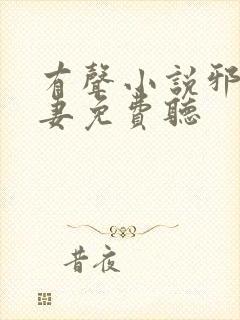 有聲小說邪
妻免費聽
昔夜